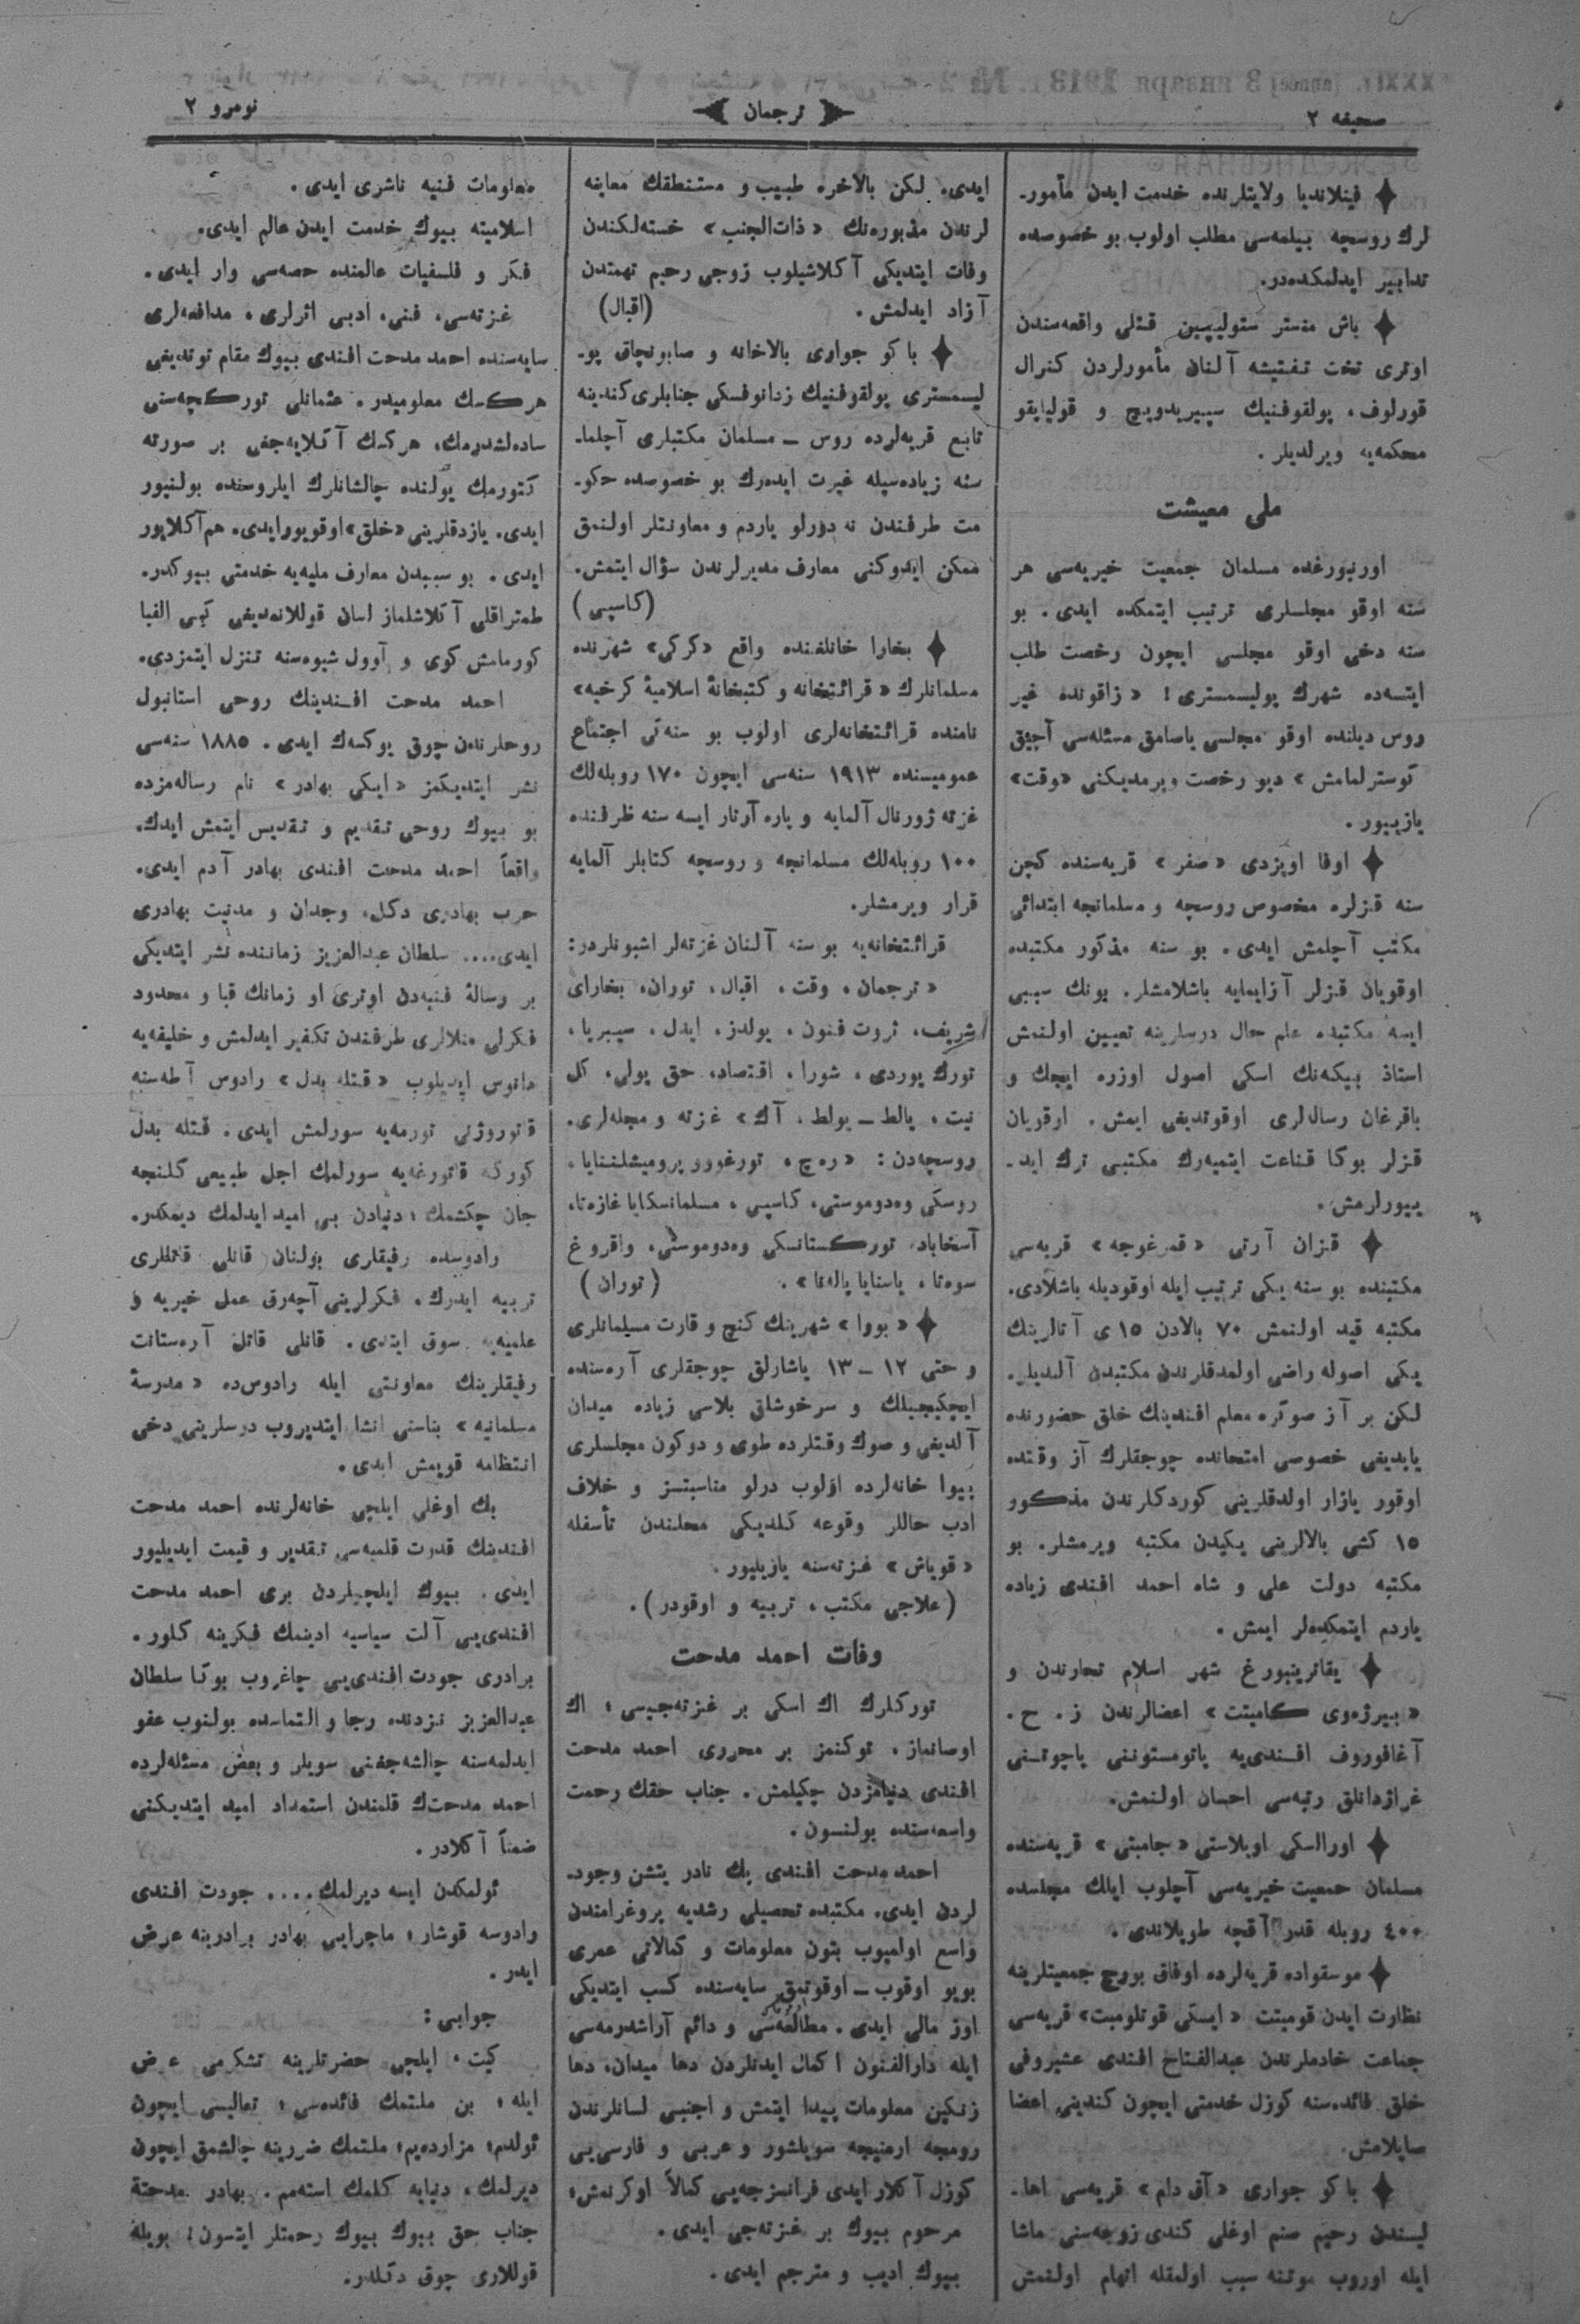 صحیفه ٢
ترجمان
نومرو ٢
فینلاندیا ولایتلرنده خدمت ایدن مأمور-
لرك روسچه بیلمه‌سی مطلب اولوب بو خصوصده
تدابیر ایدلمکده‌در.
باش منستر ستولیپین قتلی واقعه‌سندن
اوتری تخت تفتیشه آلنان مأمورلردن کنرال
قورلوف، پولقوفنیك سپیریدویچ و قولیابقو
محکمه‌یه ویرلدیلر.
ملی معیشت
اورنبورغده مسلمان جمعیت خیریه‌سی هر
سنه اوقو مجلسلری ترتیب ایتمکده ایدی. بو
سنه دخی اوقو مجلسی ایچون رخصت طلب
ایتسه‌ده شهرك پولیسمستری: «زاقونده غیر
روس دیلنده اوقو مجلسی یاصامق مسئله‌سی آچیق
کوسترلمامش» دیو رخصت ویرمدیکنی «وقت»
یازییور.
اوفا اویزدی «صفر» قریه‌سنده کچن
سنه قزلره مخصوص روسچه و مسلمانجه ابتدائی
مکتب آچلمش ایدی. بو سنه مذکور مکتبده
اوقویان قزلر آزایمایه باشلامشلر. بونك سببی
ایسه مکتبده علم حال درسلرینه تعیین اولنمش
استاذ بیکه‌نك اسکی اصول اوزره ایجك و
باقرغان رساله‌لری اوقوتدیغی ایمش. اوقویان
قزلر بوکا قناعت ایتمیه‌رك مکتبی ترك اید-
ییورلرمش.
قزان آرتی «قمرغوجه» قریه‌سی
مکتبنده بو سنه یکی ترتیب ایله اوقودیله باشلادی.
مکتبه قید اولنمش ٧٠ بالادن ١٥ ی آتالرینك
یکی اصوله راضی اولمدقلرندن مکتبدن آلندیلر.
لکن بر آز صوکره معلم افندینك خلق حضورنده
یاپدیغی خصوصی امتحانده چوجقلرك آز وقتده
اوقور یازار اولدقلرینی کوردکلرندن مذکور
١٥ کشی بالالرینی یکیدن مکتبه ویرمشلر. بو
مکتبه دولت علی و شاه احمد افندی زیاده
یاردم ایتمکده‌لر ایمش.
یقاترینبورغ شهر اسلام تجارندن و
«بیرژه‌وی کامیتت» اعضالرندن ز. ح.
آغافوروف افندی‌یه پاتومستوننی پاچوتنی
غراژدانلق رتبه‌سی احسان اولنمش.
اورالسکی اوبلاستی «جامبتی» قریه‌سنده
مسلمان جمعیت خیریه‌سی آچلوب ایلك مجلسده
٤٠٠ روبله قدر آقچه طوپلاندی.
موسقواده قریه‌لرده اوفاق بورچ جمعیتلرینه
نظارت ایدن قومیتت «ایسکی قوتلومبت» قریه‌سی
جماعت خادملرندن عبدالفتاح افندی عشیروفی
خلق فائده‌سنه کوزل خدمتی ایچون کندینی اعضا
صایلامش.
باکو جواری «آق دام» قریه‌سی اها-
لیسندن رحیم صنم اوغلی کندی زوجه‌سنی ماشا
ایله اوروب موتنه سبب اولمقله اتهام اولنمش
ایدی. لکن بالاخره طبیب و مستنطقك معاینه
لرندن مذبوره‌نك «ذات‌الجنب» خسته‌لکندن
وفات ایتدیکی آکلاشیلوب زوجی رحیم تهمتدن
آزاد ایدلمش. (اقبال)
باکو جواری بالاخانه و صابونچاق پو-
لیسمستری پولقوفنیك زدانوفسکی جنابلری کندینه
تابع قریه‌لرده روس - مسلمان مکتبلری آچلما-
سنه زیاده‌سیله غیرت ایده‌رك بو خصوصده حکو-
مت طرفندن نه دورلو یاردم و معاونتلر اولنمق
ممکن ایدوکنی معارف مدیرلرندن سؤال ایتمش.
(کاسپی)
بخارا خانلغنده واقع «کرکی» شهرنده
مسلمانلرك «قرائتخانه و کتبخانهٔ اسلامیهٔ کرخیه»
نامنده قرائتخانه‌لری اولوب بو سنه‌کی اجتماع
عمومیسنده ١٩١٣ سنه‌سی ایچون ١٧٠ روبله‌لك
غزته ژورنال آلمایه و پاره آرتار ایسه سنه ظرفنده
١٠٠ روبله‌لك مسلمانجه و روسچه کتابلر آلمایه
قرار ویرمشلر.
قرائتخانه‌یه بو سنه آلنان غزته‌لر اشبونلردر:
«ترجمان، وقت، اقبال، توران، بخارای
شریف، ثروت فنون، یولدز، ایدل، سیبریا،
تورك یوردی، شورا، اقتصاد، حق یولی، کل
نیت، یالط - یولط، آك» غزته و مجله‌لری.
روسچه‌دن: «ره‌چ، تورغوو پرومیشلننایا،
روسکی وه‌دوموستی، کاسپی، مسلمانسکایا غازه‌تا،
آسخاباد، تورکستانسکی وه‌دوموستی، واقروغ
سوه‌تا، یاسنایا پالیه‌نا». (توران)
«بووا» شهرینك کنچ و قارت مسلمانلری
و حتی ١٢ - ١٣ یاشارلق چوجقلری آره‌سنده
ایچکیجیلك و سرخوشلق بلاسی زیاده میدان
آلدیغی و صوك وقتلرده طوی و دوکون مجلسلری
پیوا خانه‌لرده اولوب درلو مناسبتسز و خلاف
ادب حاللر وقوعه کلدیکی محلندن تأسفله
«قویاش» غزته‌سنه یازیلیور.
(علاجی مکتب، تربیه و اوقودر).
وفات احمد مدحت
تورکلرك اك اسکی بر غزته‌جیسی؛ اك
اوصانماز، توکنمز بر محرری احمد مدحت
افندی دنیامزدن چکیلمش. جناب حقك رحمت
واسعه‌سنده بولنسون.
احمد مدحت افندی پك نادر یتشن وجود-
لردن ایدی. مکتبده تحصیلی رشدیه پروغرامندن
واسع اولمیوب بتون معلومات و کمالاتی عمری
بویو اوقوب - اوقوتمق سایه‌سنده کسب ایتدیکی
اوز مالی ایدی. مطالعه‌سی و دائم آراشدرمه‌سی
ایله دارالفنون اکمال ایدنلردن دها میدان، دها
زنکین معلومات پیدا ایتمش و اجنبی لسانلرندن
رومجه ارمنیجه سویلشور و عربی و فارسی‌یی
کوزل آکلار ایدی فرانسزجه‌یی کمالاً اوکرنمش؛
مرحوم بیوك بر غزته‌جی ایدی.
بیوك ادیب و مترجم ایدی.
معلومات فنیه ناشری ایدی.
اسلامیته بیوك خدمت ایدن عالم ایدی.
فکر و فلسفیات عالمنده حصه‌سی وار ایدی.
غزته‌سی، فنی، ادبی اثرلری، مدافعه‌لری
سایه‌سنده احمد مدحت افندی بیوك مقام توتدیغی
هرکسك معلومیدر. عثمانلی تورکچه‌سنی
ساده‌لشدرمك، هرکسك آکلایه‌جغی بر صورته
کتورمك یولنده چالشانلرك ایلروسنده بولنیور
ایدی. یازدقلرینی «خلق» اوقویور ایدی. هم آکلایور
ایدی. بو سببدن معارف ملیه‌یه خدمتی بیوکدر.
طمتراقلی آکلاشلماز لسان قوللانمدیغی کبی الفبا
کورمامش کوی و آوول شیوه‌سنه تنزل ایتمزدی.
احمد مدحت افندینك روحی استانبول
روحلرندن چوق یوکسك ایدی. ١٨٨٥ سنه‌سی
نشر ایتدیکمز «ایکی بهادر» نام رساله‌مزده
بو بیوك روحی تقدیم و تقدیس ایتمش ایدك.
واقعاً احمد مدحت افندی بهادر آدم ایدی.
حرب بهادری دکل، وجدان و مدنیت بهادری
ایدی.... سلطان عبدالعزیز زماننده نشر ایتدیکی
بر رسالهٔ فنیه‌دن اوتری او زمانك قبا و محدود
فکرلی منلالری طرفندن تکفیر ایدلمش و خلیفه‌یه
ایدیلوب «قتله بدل» رادوس آطه‌سنه
قاتوروژنی تورمه‌یه سورلمش ایدی. قتله بدل
کورکه قاتورغه‌یه سورلمك اجل طبیعی کلنجه
جان چکشمك؛ دنیادن بی امید ایدلمك دیمکدر.
رادوسده رفیقلری بولنان قانلی قاتللری
تربیه ایدرك، فکرلرینی آچه‌رق عمل خیریه و
علمیه‌یه سوق ایتدی. قانلی قاتل آره‌ستانت
رفیقلرینك معاونتی ایله رادوس‌ده «مدرسهٔ
مسلمانیه» بناسنی انشا ایتدیروب درسلرینی دخی
انتظامه قویمش ایدی.
بك اوغلی ایلچی خانه‌لرنده احمد مدحت
افندینك قدرت قلمیه‌سی تقدیر و قیمت ایدیلیور
ایدی. بیوك ایلچیلردن بری احمد مدحت
افندی‌یی آلت سیاسیه ادینمك فکرینه کلور.
برادری جودت افندی‌یی چاغروب بوکا سلطان
عبدالعزیز نزدنده رجا و التماسده بولنوب عفو
ایدلمه‌سنه چالشه‌جغنی سویلر و بعض مسئله‌لرده
احمد مدحت‌ك قلمندن استمداد امید ایتدیکنی
ضمناً آکلادر.
ئولمکدن ایسه دیرلمك.... جودت افندی
رادوسه قوشار؛ ماجرایی بهادر برادرینه عرض
ایدر.
جوابی:
کیت، ایلچی حضرتلرینه تشکرمی عرض
ایله؛ بن ملتمك فائده‌سی؛ تعالیسی ایچون
ئولدم؛ مزارده‌یم؛ ملتمك ضررینه چالشمق ایچون
دیرلمك، دنیایه کلمك استه‌مم. بهادر مدحته
جناب حق بیوك بیوك رحمتلر ایتسون! بویله
قوللاری چوق دکلدر.